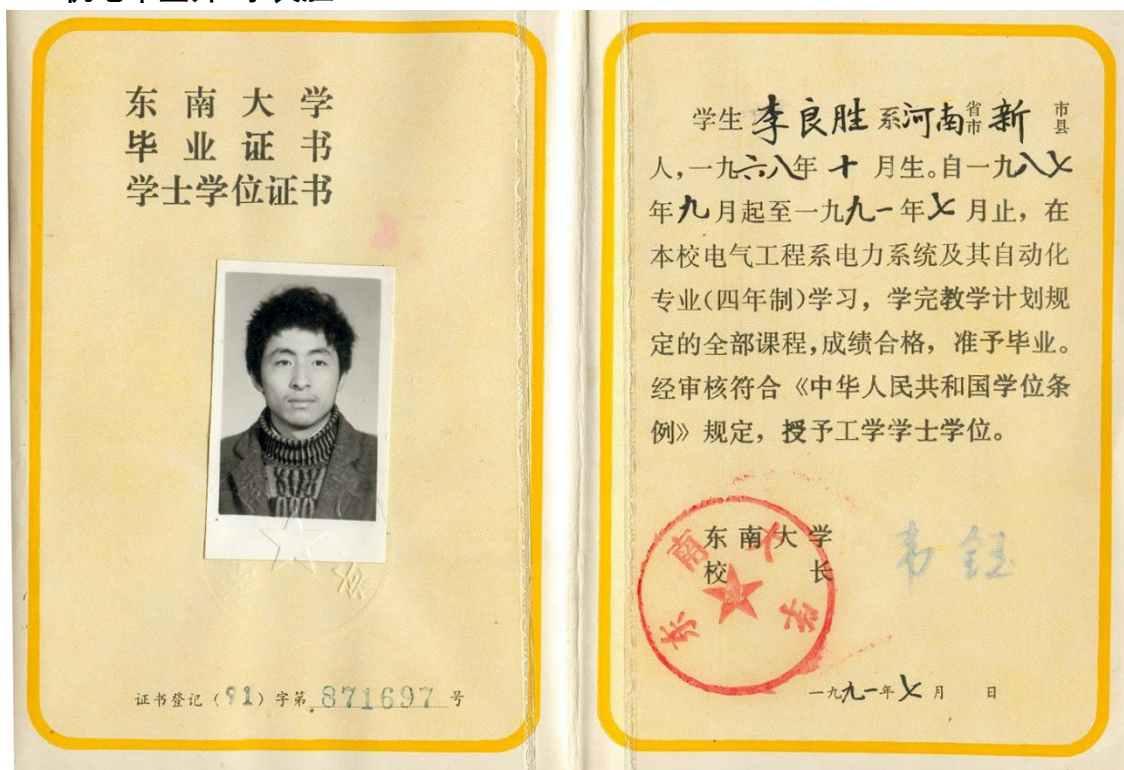 东南大学
毕业证书
学士学位证书
证书登记（91）字第 871697 号
学生 李良胜 系河南省市 新 市县
人，一九六八年 十 月生。自一九八七
年九月起至一九九一年七月止，在
本校电气工程系电力系统及其自动化
专业(四年制)学习，学完教学计划规
定的全部课程，成绩合格，准予毕业。
经审核符合《中华人民共和国学位条
例》规定，授予工学学士学位。
东南大学
校长
韦钰
东南大学
一九九一年七月 日